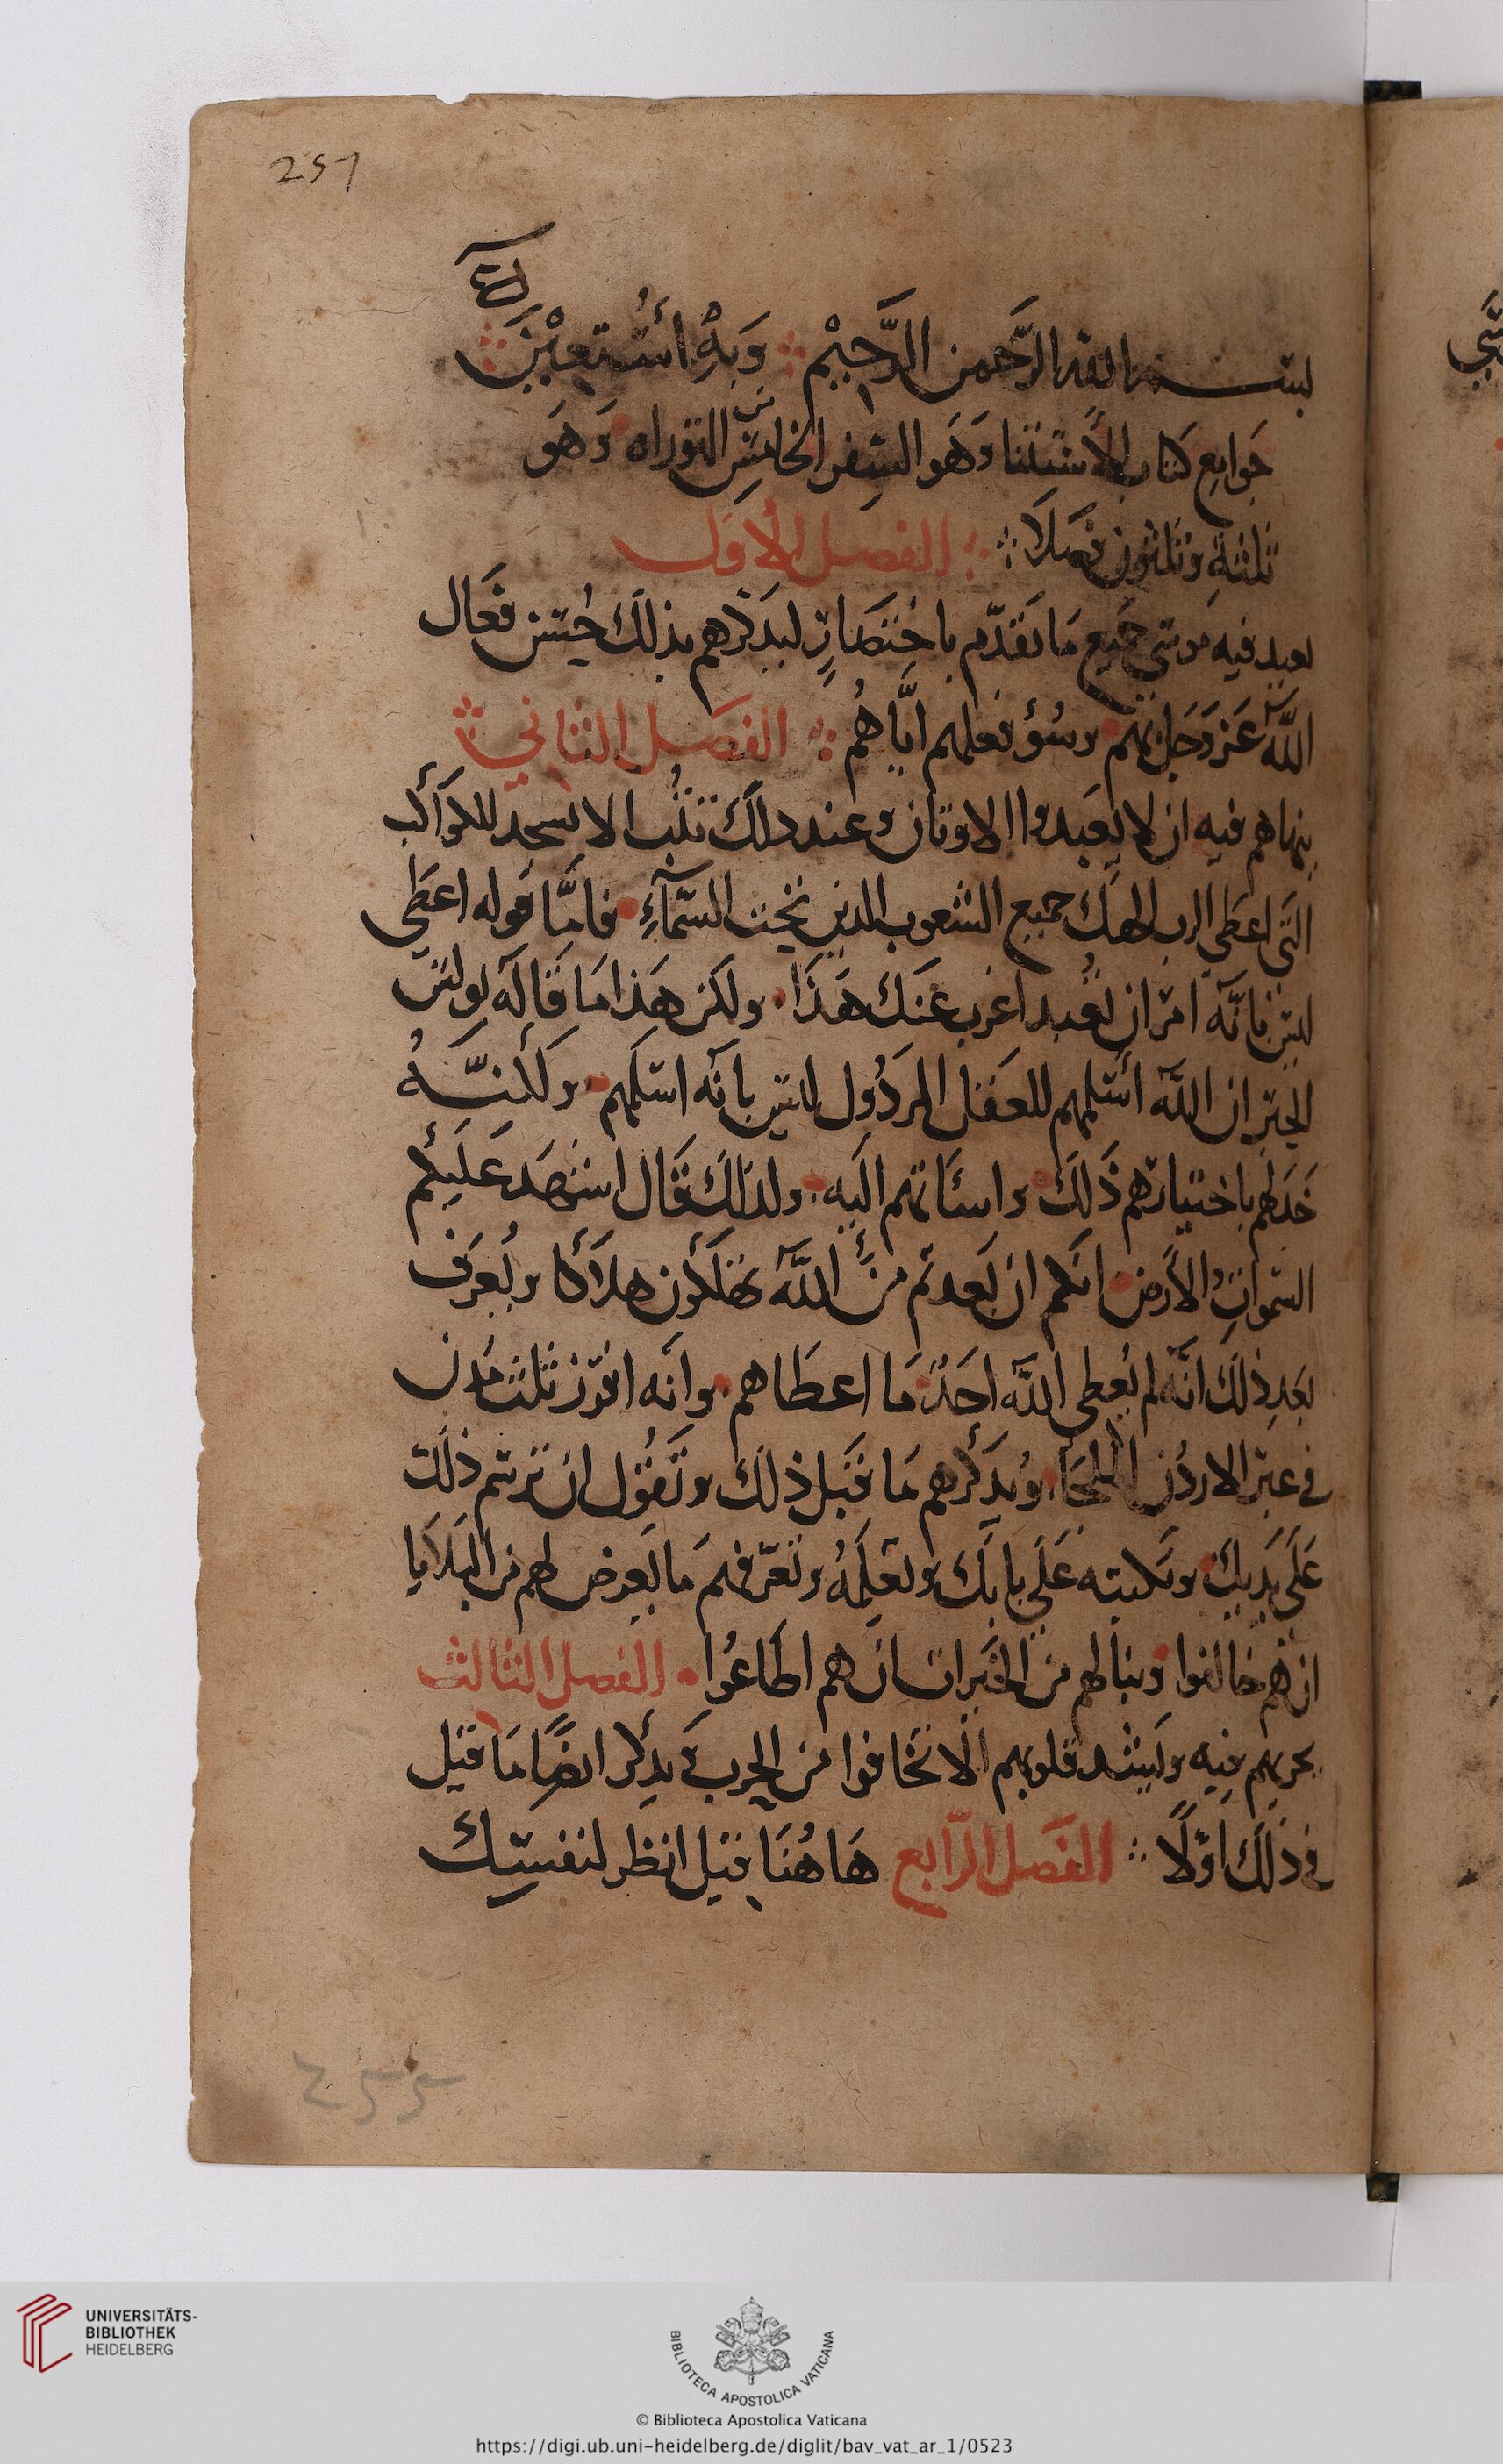 257
بسم الله الرَّحمن الرَّحِيْم ⁘ وَبهِ أسْتعِيْنَ ⁘
جَوامِع كتاب الاستثنا وَهو السِفر الخامس من التوراه وَهوَ
ثلثة وثلثون فصلاً ⁘ الفصل الأوَل
يعيد فيه موسَى جَميع مَا تقدّم باختصَارٍ ليذكرهم بذلك حُسن فعَال
اللّه عَز وَجَل بهم وسُؤ فعلهم ايَّاهُم ⁘ الفصَل الثاني ⁘
ينهاهم فيه ان لا يعَبدوا الاوثان وعند ذلك كُتب الا يسجد للكواكب
التي اعطي الرب الهك جميع الشعوب الذين تحت السمآءِ فامَّا قوله اعطَي
ليس بانّه امر ان تُعبد اغرب عنك هَذَا ولكن هَذا مَا قاله بولس
الحبر ان اللّه أسلمهم للعقل المردُول ليس بانه اسلمهم ولكنّهُ
خَذلهم باختيارهم ذَلك واسَاتهم اليه ولذلك قال اشهَد عَليكم
السموات والأرض انكم ان بَعدتم من اللّه تهلكون هلاكا ويُعرَف
بعد ذلك انّه لم يُعطي اللّه احَدً مَا اعطَاهم وانه افرز ثلث مُدن
في عبر الاردُن للملجَأ ويذكرهم مَا قبل ذلك وتقُول ان ترسم ذلك
عَلَى يَديك وتكبته عَلَى بابك وتعلمهُ وتعرّفهم مَا يَعرض لهم من البلايا
ان هم خالفوا وينالهم من الخَيرات ان هم اطَاعُوا الفصل الثالث
يجريهم فيه ويَشد قلوبهم الّا تخافوا من الحرب ويذكر ايضًا مَا قيل
في ذلك اوّلًا ⁘ الفصل الرّابع هَاهُنَا قيل انظر لنفسِك
UNIVERSITÄTS-
BIBLIOTHEK
HEIDELBERG
BIBLIOTECA APOSTOLICA VATICANA
© Biblioteca Apostolica Vaticana
https://digi.ub.uni-heidelberg.de/diglit/bav_vat_ar_1/0523